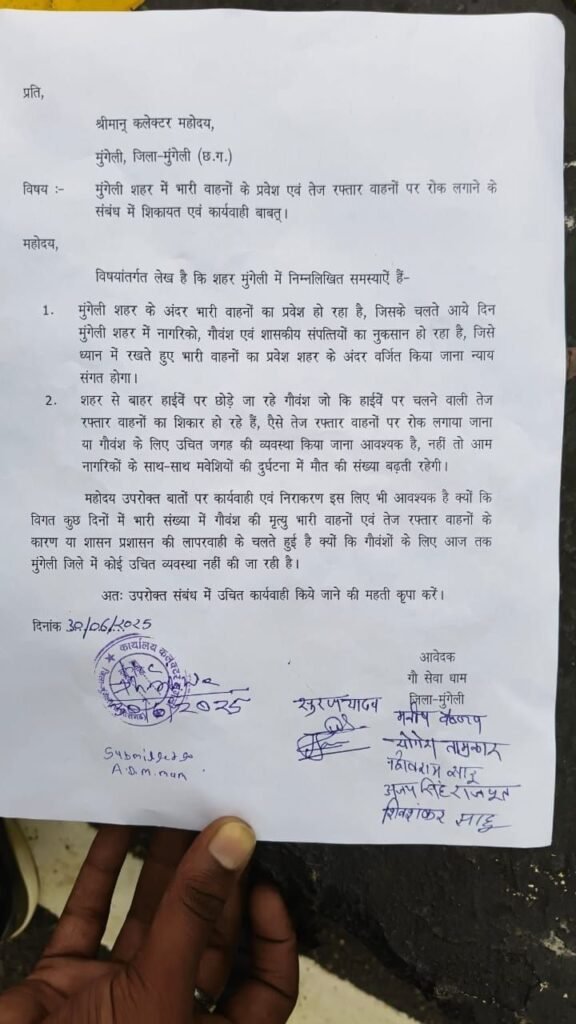 प्रति,
श्रीमान् कलेक्टर महोदय,
मुंगेली, जिला-मुंगेली (छ.ग.)
विषय :- मुंगेली शहर में भारी वाहनों के प्रवेश एवं तेज रफ्तार वाहनों पर रोक लगाने के
संबंध में शिकायत एवं कार्यवाही बाबत्।
महोदय,
विषयांतर्गत लेख है कि शहर मुंगेली में निम्नलिखित समस्याऐं हैं-
1. मुंगेली शहर के अंदर भारी वाहनों का प्रवेश हो रहा है, जिसके चलते आये दिन
मुंगेली शहर में नागरिको, गौवंश एवं शासकीय संपत्तियों का नुकसान हो रहा है, जिसे
ध्यान में रखते हुए भारी वाहनों का प्रवेश शहर के अंदर वर्जित किया जाना न्याय
संगत होगा।
2. शहर से बाहर हाईवें पर छोड़े जा रहे गौवंश जो कि हाईवें पर चलने वाली तेज
रफ्तार वाहनों का शिकार हो रहे हैं, ऐसे तेज रफ्तार वाहनों पर रोक लगाया जाना
या गौवंश के लिए उचित जगह की व्यवस्था किया जाना आवश्यक है, नहीं तो आम
नागरिकों के साथ-साथ मवेशियों की दुर्घटना में मौत की संख्या बढ़ती रहेगी।
महोदय उपरोक्त बातों पर कार्यवाही एवं निराकरण इस लिए भी आवश्यक है क्यों कि
विगत कुछ दिनों में भारी संख्या में गौवंश की मृत्यु भारी वाहनों एवं तेज रफ्तार वाहनों के
कारण या शासन प्रशासन की लापरवाही के चलते हुई है क्यों कि गौवंशों के लिए आज तक
मुंगेली जिले में कोई उचित व्यवस्था नहीं की जा रही है।
अतः उपरोक्त संबंध में उचित कार्यवाही किये जाने की महती कृपा करें।
दिनांक 30/06/2025
कार्यालय कलेक्टर
2025
आवेदक
गौ सेवा धाम
जिला-मुंगेली
सुरज यादव
मनीष वैष्णव
योगेश ताम्रकार
साहू
अजय सिंह राजपूत
शिवशंकर साहू
Submitted to
A.D.M.